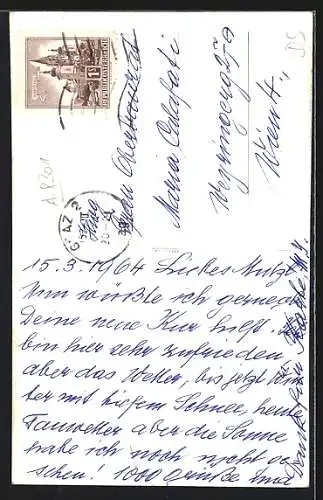 A 8301
GRAZ 2
Frau Oberstaurat
Maria Calafati
Weyringerg
Wien 4.
15.3.1964 Liebes Mutzi
Nun wüßte ich gerne ob
Deine neue Kur hilft. Ich
bin hier sehr zufrieden
aber das Wetter, bis jetzt Win-
ter mit tiefem Schnee, heute
Tauwetter aber die Sonne
habe ich noch nicht ge-
sehen! 1000 Grüße und